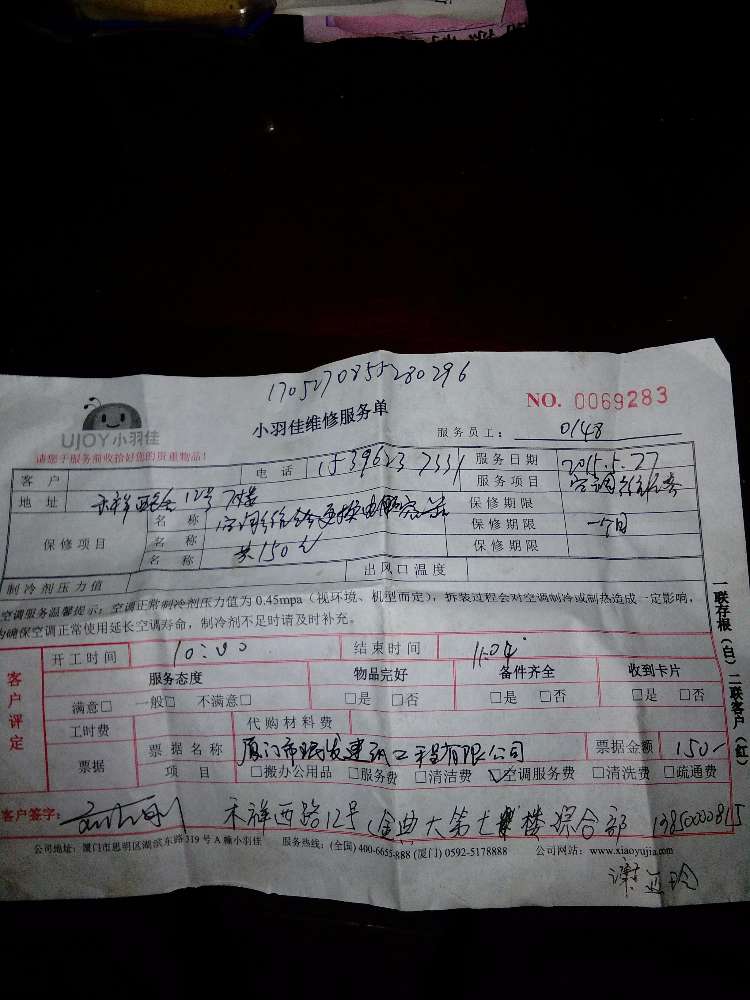 1705270855280296
NO. 0069283
UJOY小羽佳
小羽佳维修服务单
服务员工： 0148
请您于服务前收拾好您的贵重物品！
客 户 电 话 服务日期 2015.5.27
地 址 禾祥西路12号 服务项目
保修项目 名 称 保修期限
名 称 保修期限
名 称 共150元 保修期限
制冷剂压力值 出风口温度
空调服务温馨提示：空调正常制冷剂压力值为 0.45mpa（视环境、机型而定），拆装过程会对空调制冷或制热造成一定影响，
为确保空调正常使用延长空调寿命，制冷剂不足时请及时补充。
一联存根（白）二联客户（红）
客户评定
开工时间 10:00 结束时间 11:04
服务态度 物品完好 备件齐全 收到卡片
满意□ 一般□ 不满意□ □是 □否 □是 □否 □是 □否
工时费 代购材料费
票据 票据名称 厦门市 建筑工程有限公司 票据金额 150-
项 目 □搬办公用品 □服务费 □清洁费 ☑空调服务费 □清洗费 □疏通费
客户签字： 禾祥西路12号 金典大 第七 楼综合部
公司地址：厦门市思明区湖滨东路319号A幢小羽佳 服务热线：(全国) 400-6655-888 (厦门) 0592-5178888 公司网站：www.xiaoyujia.com